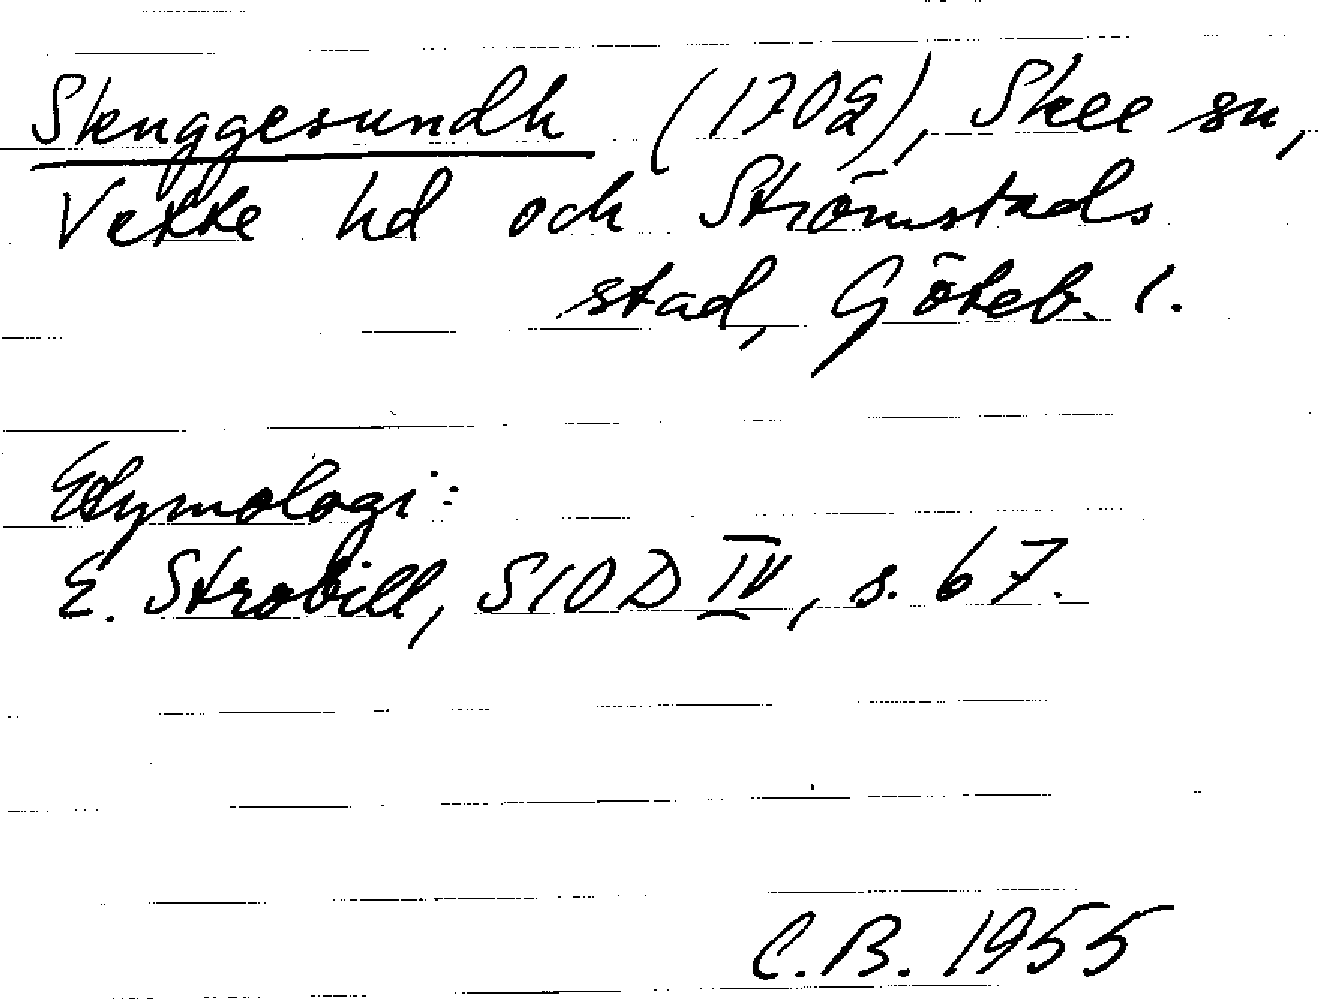 Skuggesundh (1702), Skee sn,
Vette hd och Strömstads
stad, Göteb. l.
Etymologi:
E. Strobill, SIOD IV, s. 67.
C.B. 1955